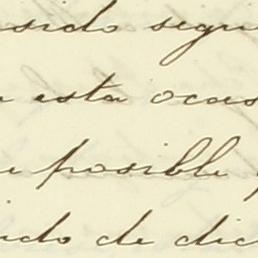 sido segu
a esta ocas
e posible
ndo de dic